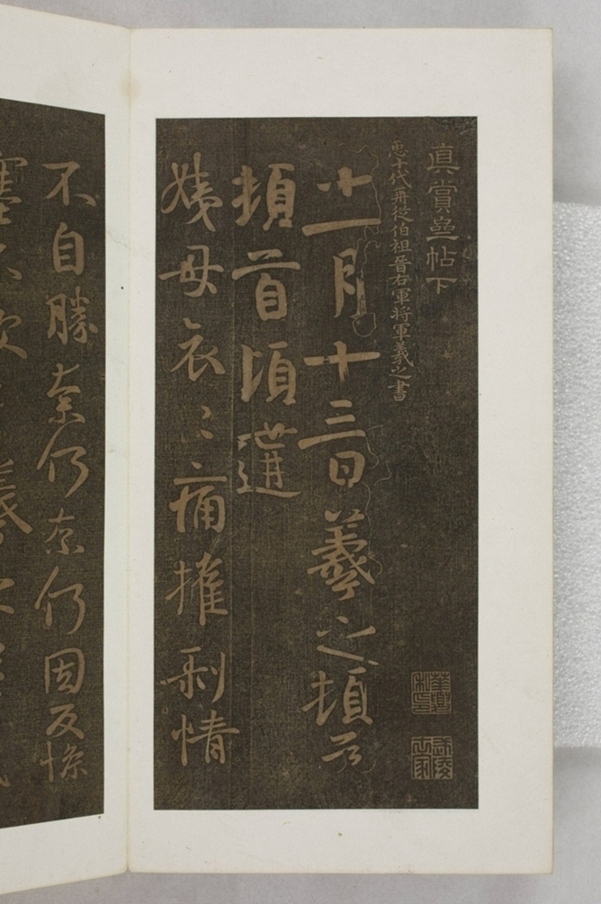 真賞齋帖下
𢘑十代再從伯祖晉右軍將軍羲之書
十一月十三日羲之頓首
頓首頃遘
姨母哀〻痛摧剥情
不自勝奈何奈何因反慘
塞不次羲之